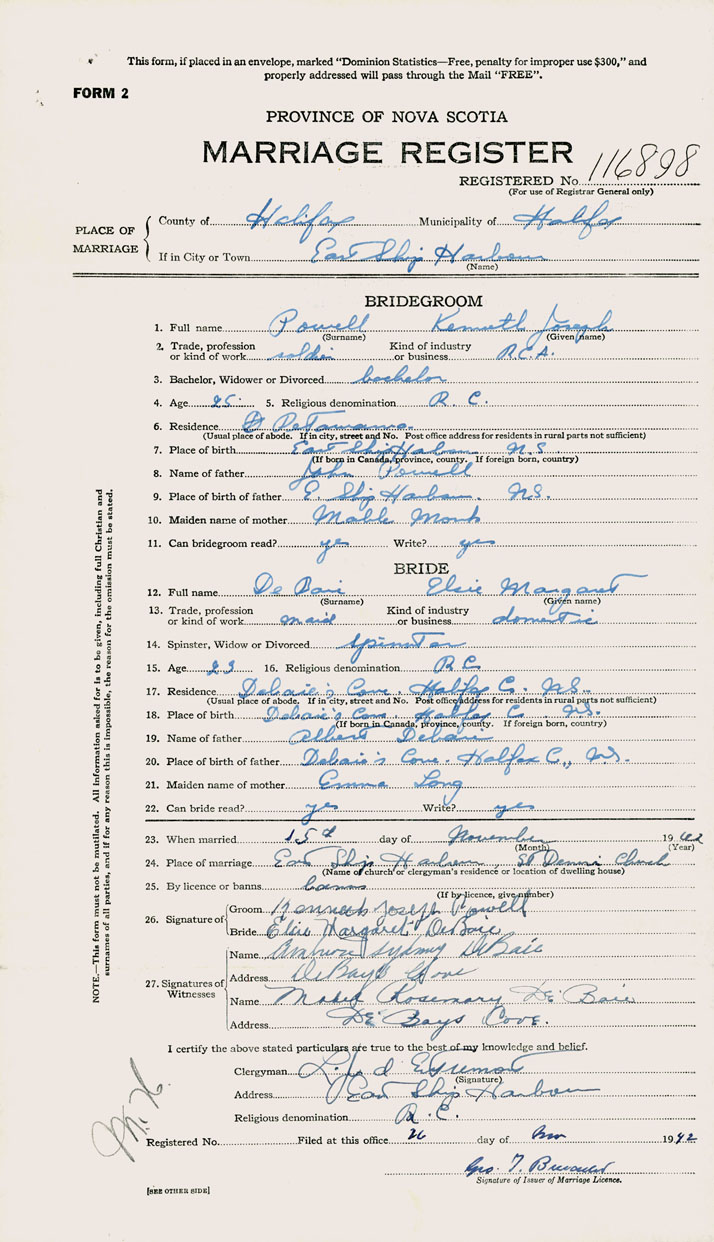 This form, if placed in an envelope, marked "Dominion Statistics—Free, penalty for improper use $300," and
properly addressed will pass through the Mail "FREE".
FORM 2
PROVINCE OF NOVA SCOTIA
MARRIAGE REGISTER
REGISTERED No. 116898
(For use of Registrar General only)
PLACE OF MARRIAGE
County of Halifax Municipality of Halifax
If in City or Town East Ship Harbour
(Name)
BRIDEGROOM
1. Full name Powell Kenneth Joseph
(Surname) (Given name)
2. Trade, profession or kind of work soldier Kind of industry or business R.C.A.
3. Bachelor, Widower or Divorced bachelor
4. Age 25 5. Religious denomination R. C.
6. Residence Petawawa
(Usual place of abode. If in city, street and No. Post office address for residents in rural parts not sufficient)
7. Place of birth East Ship Harbour N.S.
(If born in Canada, province, county. If foreign born, country)
8. Name of father John Powell
9. Place of birth of father E. Ship Harbour. N.S.
10. Maiden name of mother Monk
11. Can bridegroom read? yes Write? yes
BRIDE
12. Full name De Baie Elsie Margaret
(Surname) (Given name)
13. Trade, profession or kind of work maid Kind of industry or business domestic
14. Spinster, Widow or Divorced spinster
15. Age 23 16. Religious denomination R C
17. Residence Debaie's Cove, Halifax C. N.S.
(Usual place of abode. If in city, street and No. Post office address for residents in rural parts not sufficient)
18. Place of birth Debaie's Cove, Halifax C N.S.
(If born in Canada, province, county. If foreign born, country)
19. Name of father Albert Debaie
20. Place of birth of father Debaie's Cove. Halifax C., N.S.
21. Maiden name of mother Emma Long
22. Can bride read? yes Write? yes
23. When married 15th day of November 1942
(Month) (Year)
24. Place of marriage East Ship Harbour, St Denis Church
(Name of church or clergyman's residence or location of dwelling house)
25. By licence or banns banns
(If by licence, give number)
26. Signature of
Groom Kenneth Joseph Powell
Bride Elsie Margaret DeBaie
27. Signatures of Witnesses
Name Ambrose Sydney DeBaie
Address DeBay's Cove
Name Mabel Rosemary De Baie
Address De Bays Cove.
I certify the above stated particulars are true to the best of my knowledge and belief.
Clergyman
(Signature)
Address East Ship Harbour
Religious denomination R. C.
Registered No. Filed at this office 26 day of Nov 1942
Geo. T.
Signature of Issuer of Marriage Licence.
[SEE OTHER SIDE]
NOTE.—This form must not be mutilated. All information asked for is to be given, including full Christian and
surnames of all parties, and if for any reason this is impossible, the reason for the omission must be stated.